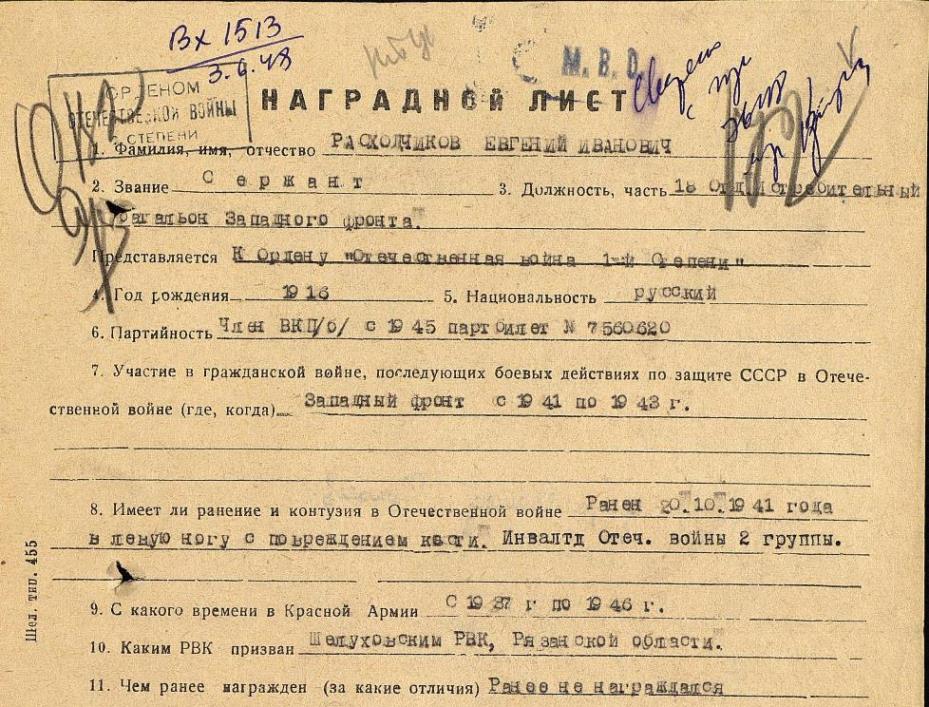 Вх 1513
3.9.48
М. В. D.
ОРДЕНОМ
ОТЕЧЕСТВЕННОЙ ВОЙНЫ
СТЕПЕНИ
НАГРАДНОЙ ЛИСТ
1. Фамилия, имя, отчество РАСХОДЧИКОВ ЕВГЕНИЙ ИВАНОВИЧ
2. Звание Сержант 3. Должность, часть 18 Отд. Истребительный
батальон Западного фронта.
Представляется К Ордену "Отечественная война 1-й Степени"
4. Год рождения 1916 5. Национальность русский
6. Партийность Член ВКП/б/ с 1945 партбилет № 7560620
7. Участие в гражданской войне, последующих боевых действиях по защите СССР в Отече-
ственной войне (где, когда) Западный фронт с 1941 по 1943 г.
8. Имеет ли ранение и контузия в Отечественной войне Ранен 20.10.1941 года
в левую ногу с повреждением кости. Инвалтд Отеч. войны 2 группы.
9. С какого времени в Красной Армии С 1937 г по 1946 г.
10. Каким РВК призван Шелуховским РВК, Рязанской области.
11. Чем ранее награжден (за какие отличия) Ранее не награждался
Шел. тип. 455